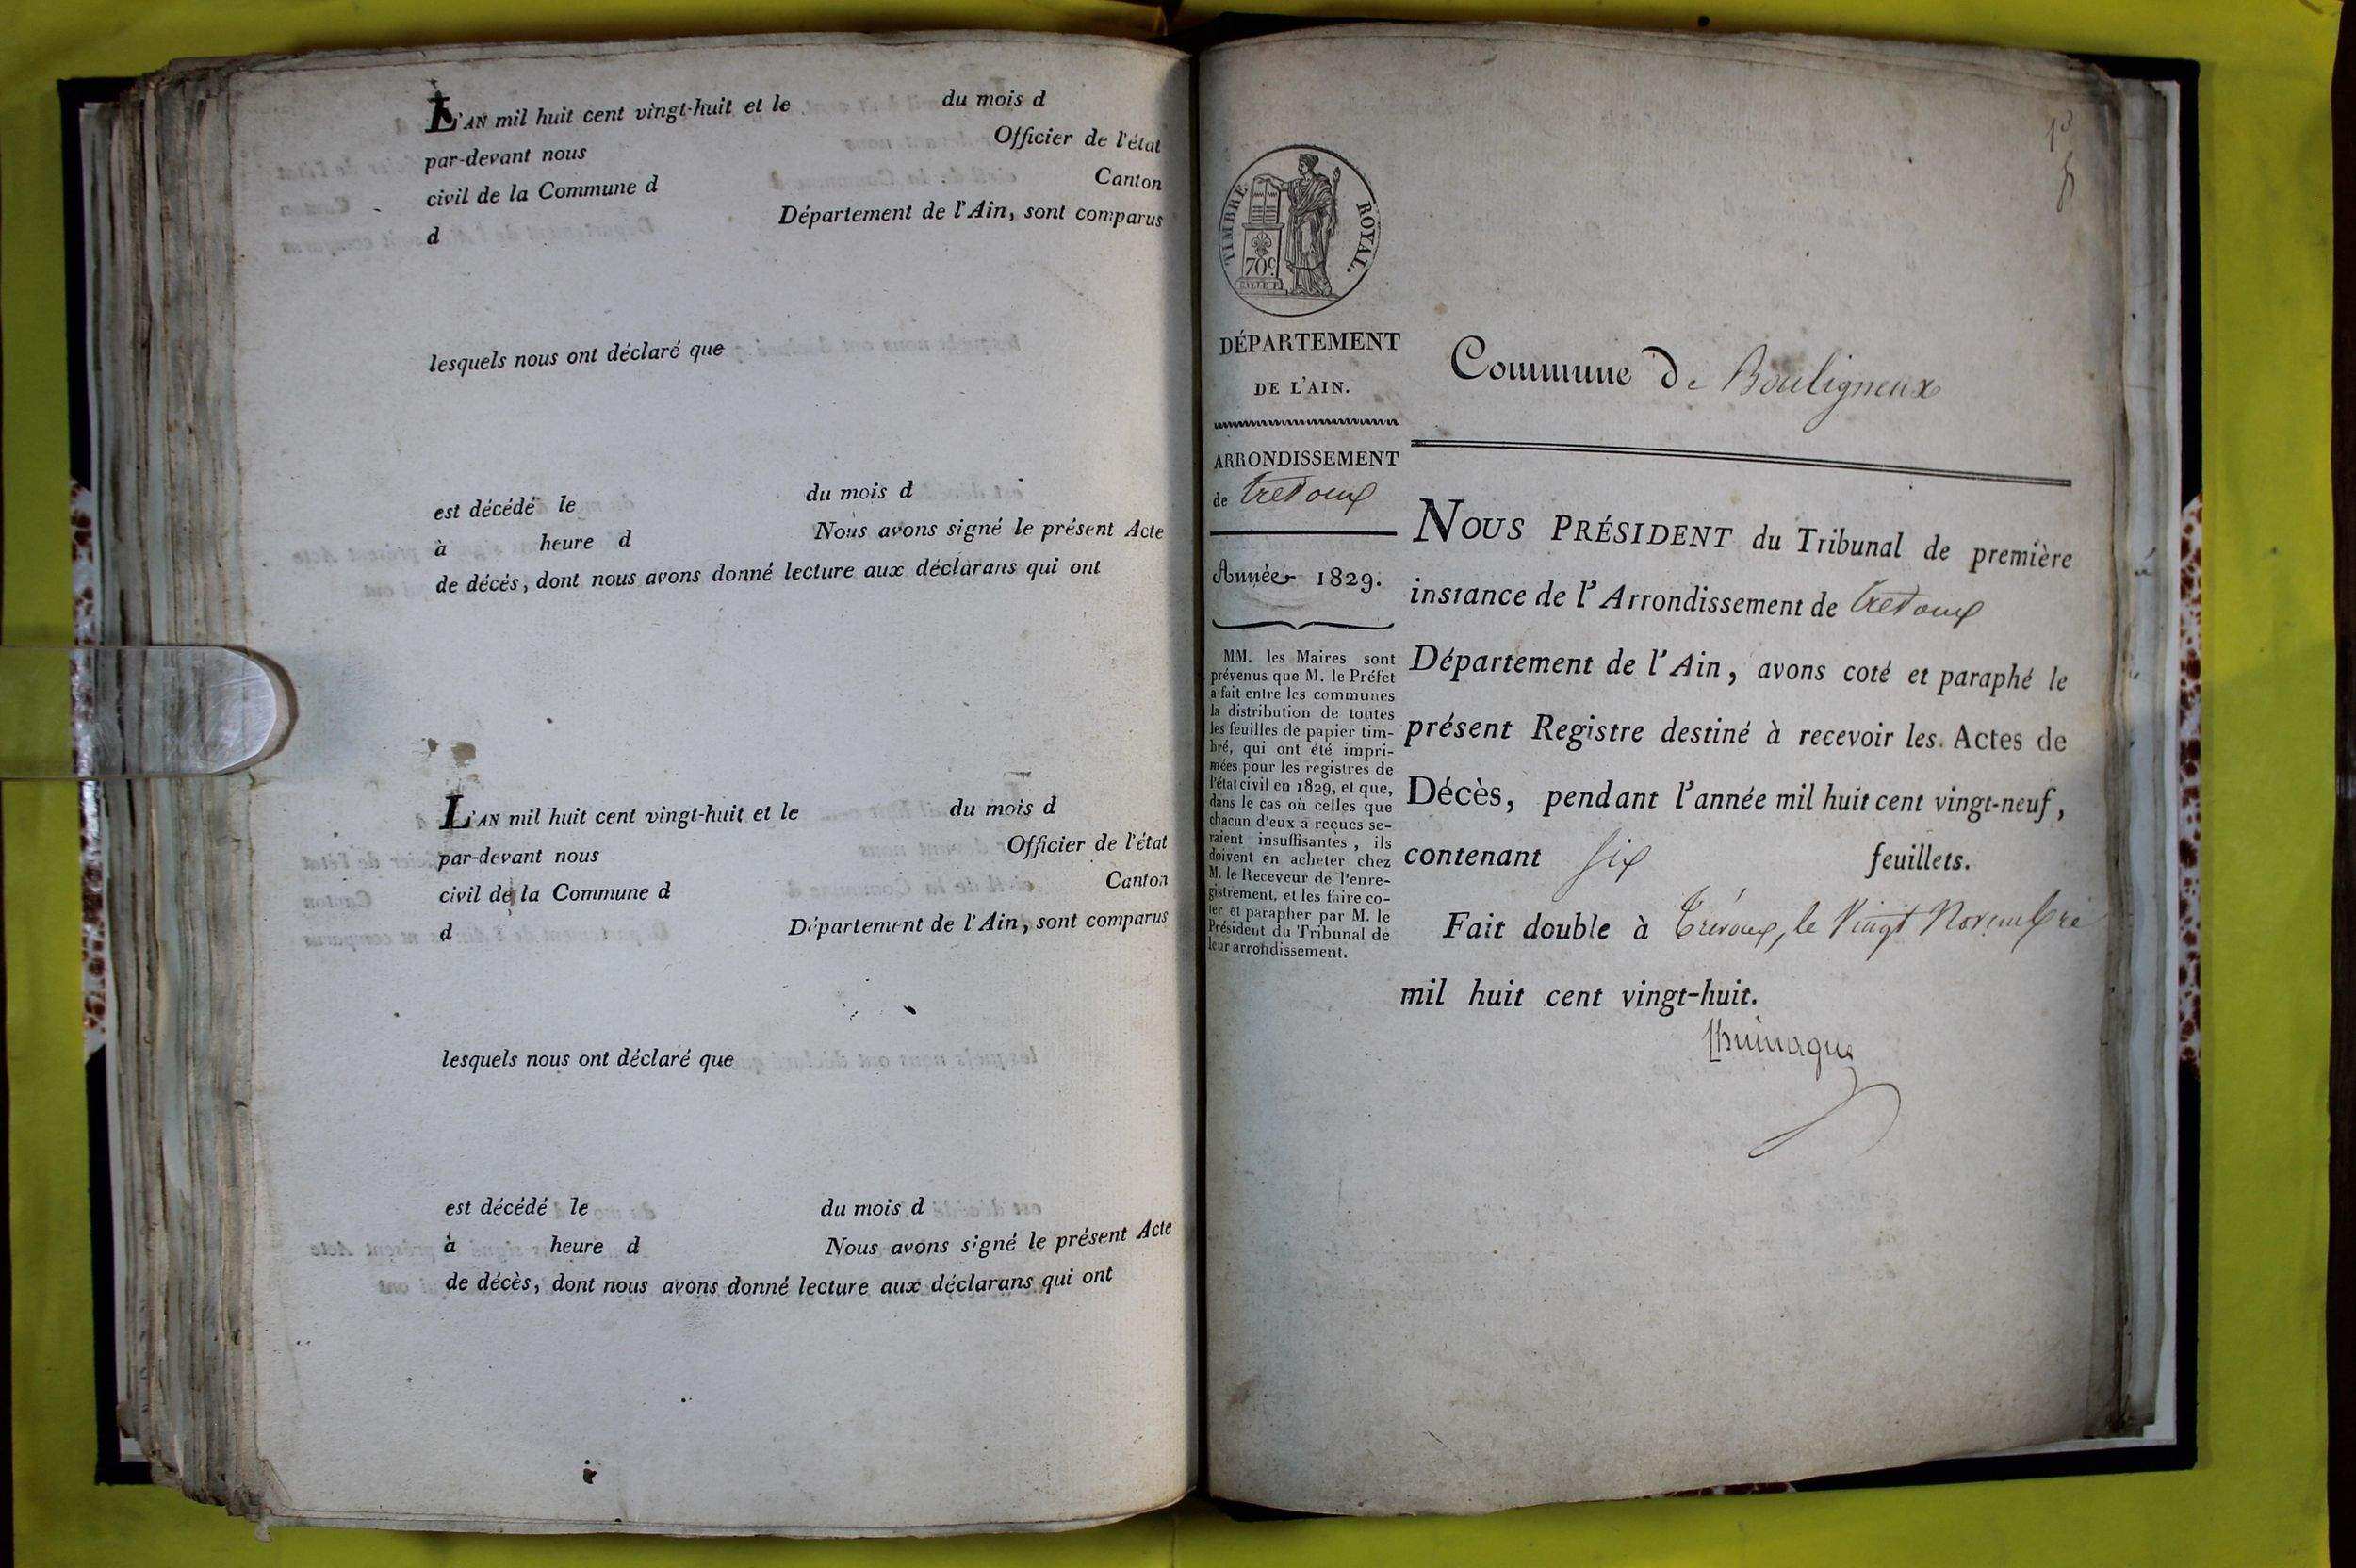 L'AN mil huit cent vingt-huit et le du mois d
par-devant nous Officier de l'état
civil de la Commune d Canton
d Département de l'Ain, sont comparus
lesquels nous ont déclaré que
est décédé le du mois d
à heure d Nous avons signé le présent Acte
de décés, dont nous avons donné lecture aux déclarans qui ont
L'AN mil huit cent vingt-huit et le du mois d
par-devant nous Officier de l'état
civil de la Commune d Canton
d Département de l'Ain, sont comparus
lesquels nous ont déclaré que
est décédé le du mois d
à heure d Nous avons signé le présent Acte
de décès, dont nous avons donné lecture aux déclarans qui ont
TIMBRE ROYAL.
70c
DÉPARTEMENT
DE L'AIN.
ARRONDISSEMENT
de Trevoux
Année 1829.
MM. les Maires sont
prévenus que M. le Préfet
a fait entre les communes
la distribution de toutes
les feuilles de papier tim-
bré, qui ont été impri-
mées pour les registres de
l'état civil en 1829, et que,
dans le cas où celles que
chacun d'eux a reçues se-
raient insuffisantes, ils
doivent en acheter chez
M. le Receveur de l'enre-
gistrement, et les faire co-
ter et parapher par M. le
Président du Tribunal de
leur arrondissement.
Commune de Bouligneux
NOUS PRÉSIDENT du Tribunal de première
instance de l'Arrondissement de Trevoux
Département de l'Ain, avons coté et paraphé le
présent Registre destiné à recevoir les Actes de
Décès, pendant l'année mil huit cent vingt-neuf,
contenant six feuillets.
Fait double à Trévoux, le Vingt Novembre
mil huit cent vingt-huit.